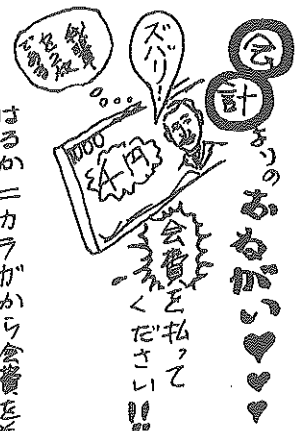 会計よりのおねがい♥♥♥
会費を払って
ください!!
ズバリ!
1000
会費
はるかニカラガから会費を